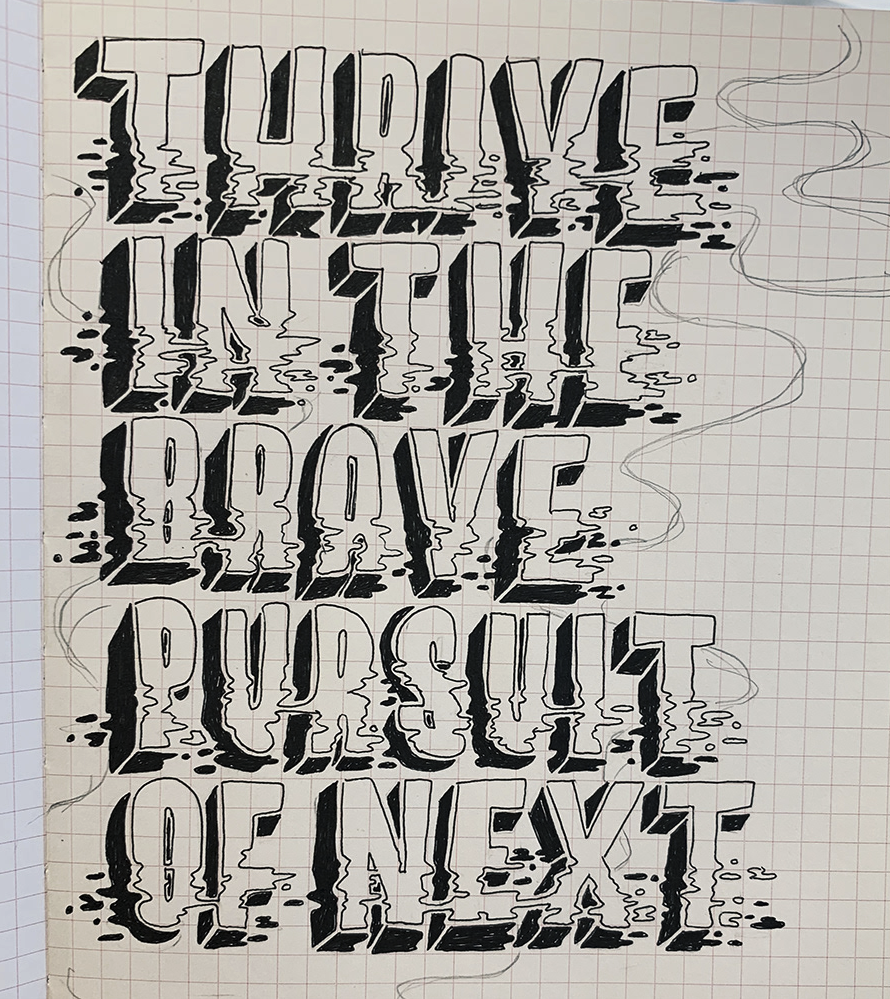 THRIVE
IN THE
BRAVE
PURSUIT
OF NEXT